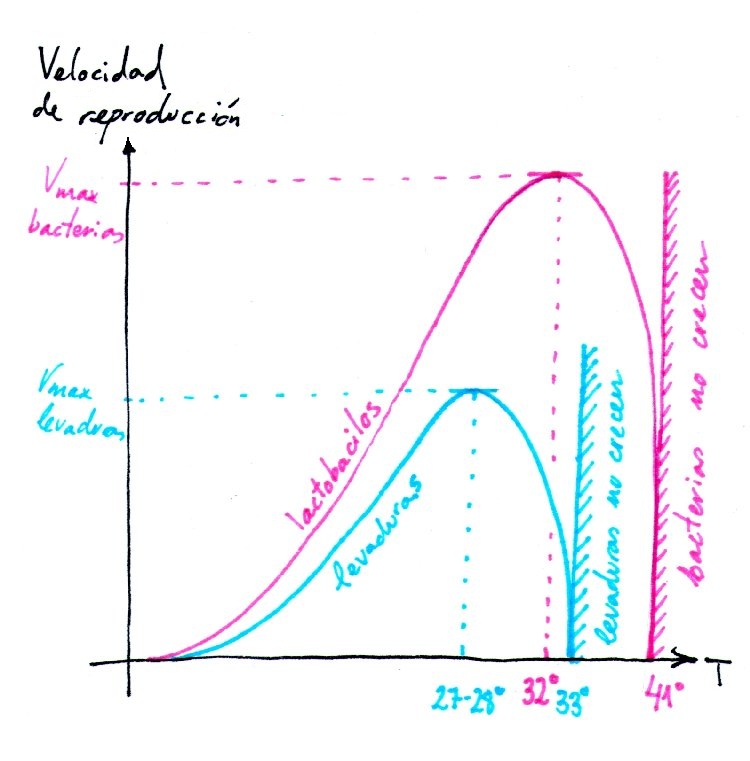 Velocidad
de reproducción
Vmax
bacterias
Vmax
levaduras
lactobacilos
levaduras
levaduras no crecen
bacterias no crecen
27-28°
32°
33°
41°
T